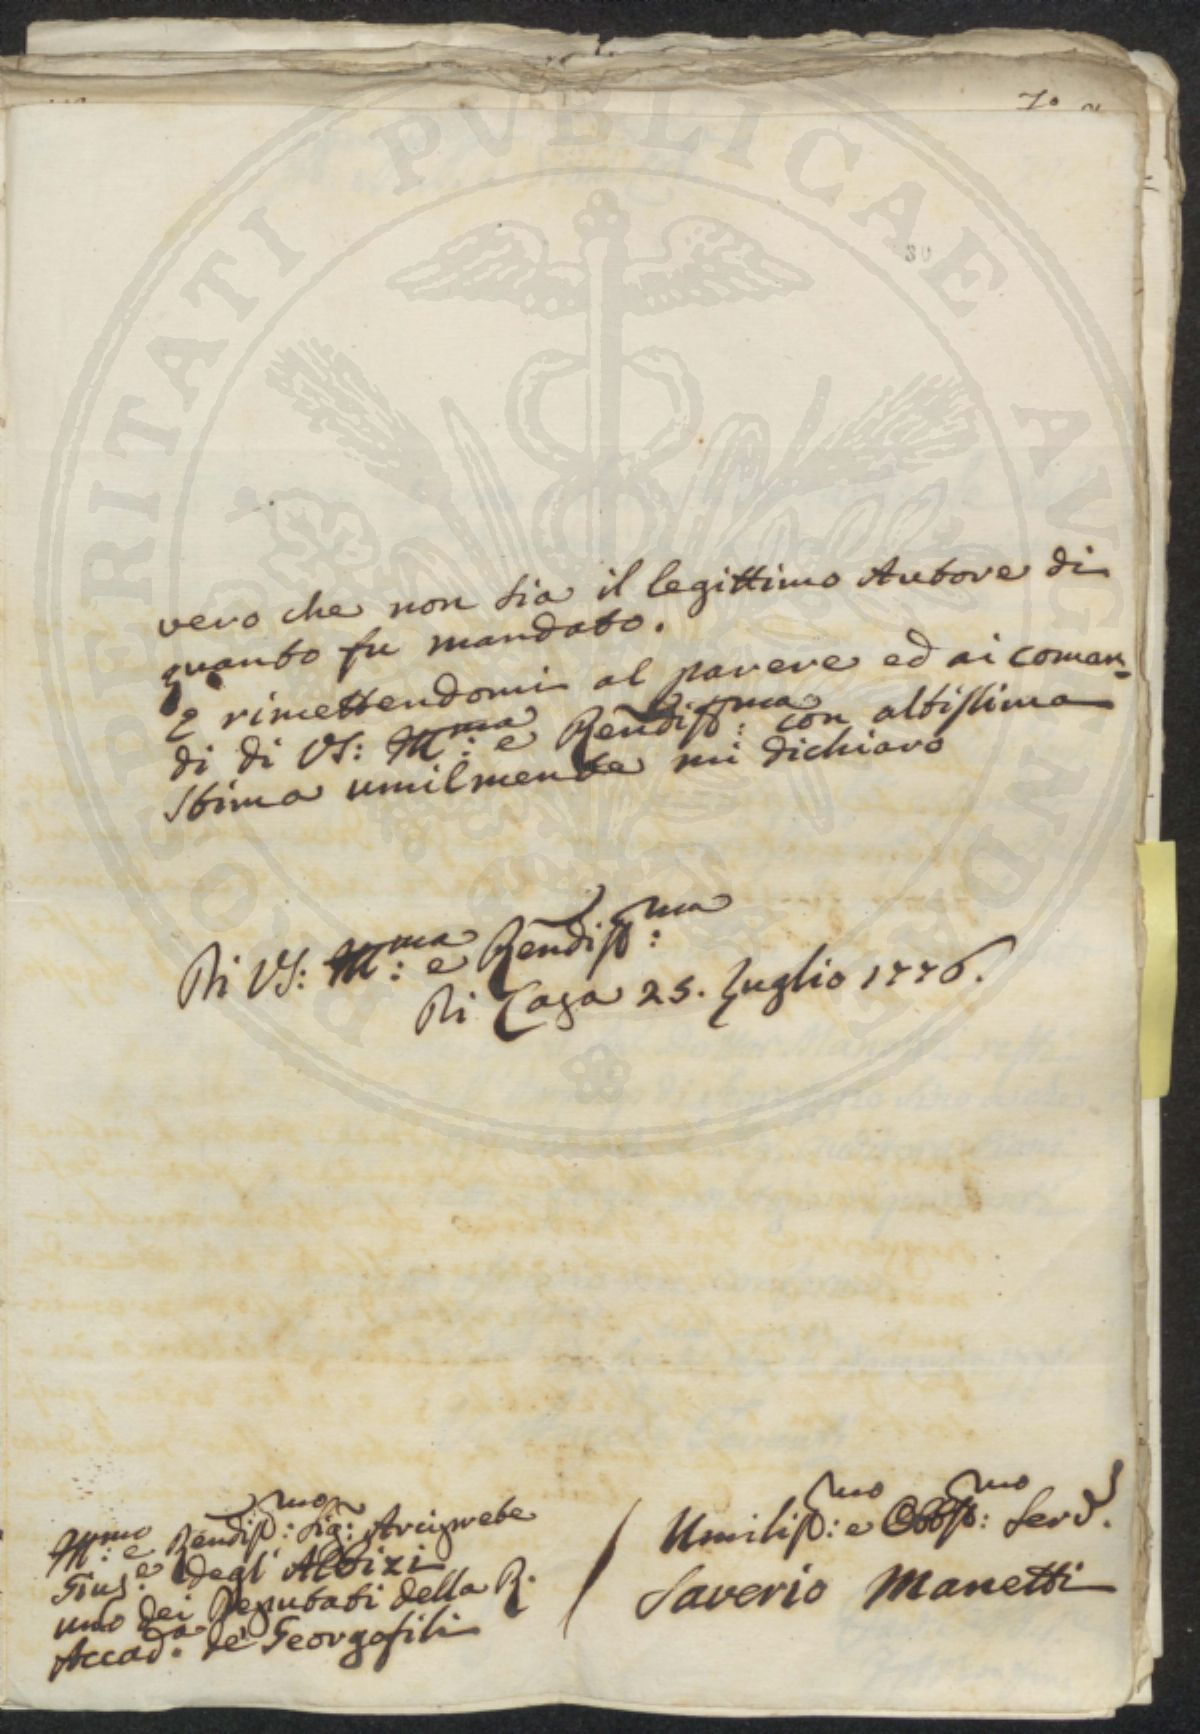 30
vero che non sia il legittimo Autore di
quanto fu mandato.
E rimettendomi al parere ed ai coman-
di di VS: Ill:ma e Rendiss:ma con altissima
stima umilmente mi dichiaro
Di VS: Ill:ma e Rendiss:ma
Di Casa 25. Luglio 1776.
Umiliss:mo e Obbss:mo Serv.
Saverio Manetti
Ill:mo e Rendiss:mo Sig: Arciprete
Gius:e degl' Albizi
uno dei Deputati della R.
Accad:a de' Georgofili
PROSPERITATI PVBLICAE AVGENDAE